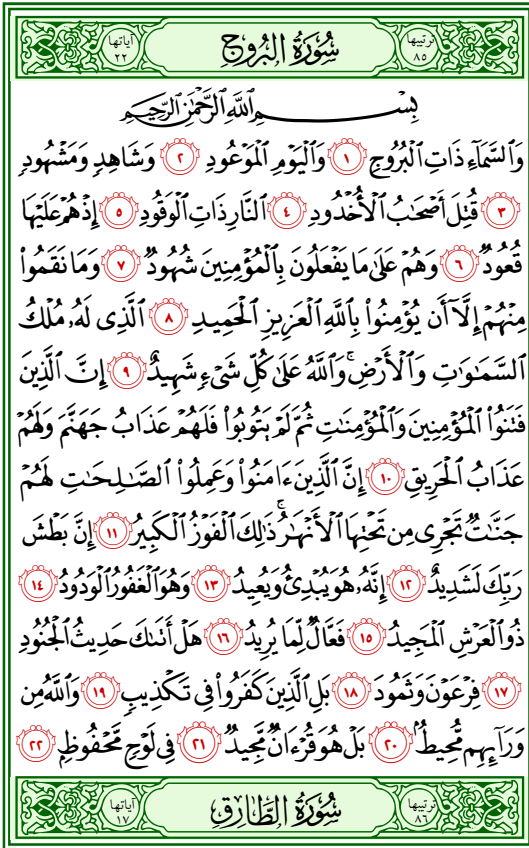 ترتيبها ٨٥ سُورَةُ البُرُوجِ آياتها ٢٢
بِسْمِ اللَّهِ الرَّحْمَٰنِ الرَّحِيمِ
وَالسَّمَآءِ ذَاتِ ٱلْبُرُوجِ ١ وَٱلْيَوْمِ ٱلْمَوْعُودِ ٢ وَشَاهِدٍ وَمَشْهُودٍ
٣ قُتِلَ أَصْحَٰبُ ٱلْأُخْدُودِ ٤ ٱلنَّارِ ذَاتِ ٱلْوَقُودِ ٥ إِذْ هُمْ عَلَيْهَا
قُعُودٌ ٦ وَهُمْ عَلَىٰ مَا يَفْعَلُونَ بِٱلْمُؤْمِنِينَ شُهُودٌ ٧ وَمَا نَقَمُوا۟
مِنْهُمْ إِلَّآ أَن يُؤْمِنُوا۟ بِٱللَّهِ ٱلْعَزِيزِ ٱلْحَمِيدِ ٨ ٱلَّذِى لَهُۥ مُلْكُ
ٱلسَّمَٰوَٰتِ وَٱلْأَرْضِ ۚ وَٱللَّهُ عَلَىٰ كُلِّ شَىْءٍ شَهِيدٌ ٩ إِنَّ ٱلَّذِينَ
فَتَنُوا۟ ٱلْمُؤْمِنِينَ وَٱلْمُؤْمِنَٰتِ ثُمَّ لَمْ يَتُوبُوا۟ فَلَهُمْ عَذَابُ جَهَنَّمَ وَلَهُمْ
عَذَابُ ٱلْحَرِيقِ ١٠ إِنَّ ٱلَّذِينَ ءَامَنُوا۟ وَعَمِلُوا۟ ٱلصَّٰلِحَٰتِ لَهُمْ
جَنَّٰتٌ تَجْرِى مِن تَحْتِهَا ٱلْأَنْهَٰرُ ۚ ذَٰلِكَ ٱلْفَوْزُ ٱلْكَبِيرُ ١١ إِنَّ بَطْشَ
رَبِّكَ لَشَدِيدٌ ١٢ إِنَّهُۥ هُوَ يُبْدِئُ وَيُعِيدُ ١٣ وَهُوَ ٱلْغَفُورُ ٱلْوَدُودُ ١٤
ذُو ٱلْعَرْشِ ٱلْمَجِيدُ ١٥ فَعَّالٌ لِّمَا يُرِيدُ ١٦ هَلْ أَتَىٰكَ حَدِيثُ ٱلْجُنُودِ
١٧ فِرْعَوْنَ وَثَمُودَ ١٨ بَلِ ٱلَّذِينَ كَفَرُوا۟ فِى تَكْذِيبٍ ١٩ وَٱللَّهُ مِن
وَرَآئِهِم مُّحِيطٌۢ ٢٠ بَلْ هُوَ قُرْءَانٌ مَّجِيدٌ ٢١ فِى لَوْحٍ مَّحْفُوظٍۭ ٢٢
ترتيبها ٨٦ سُورَةُ الطَّارِقِ آياتها ١٧